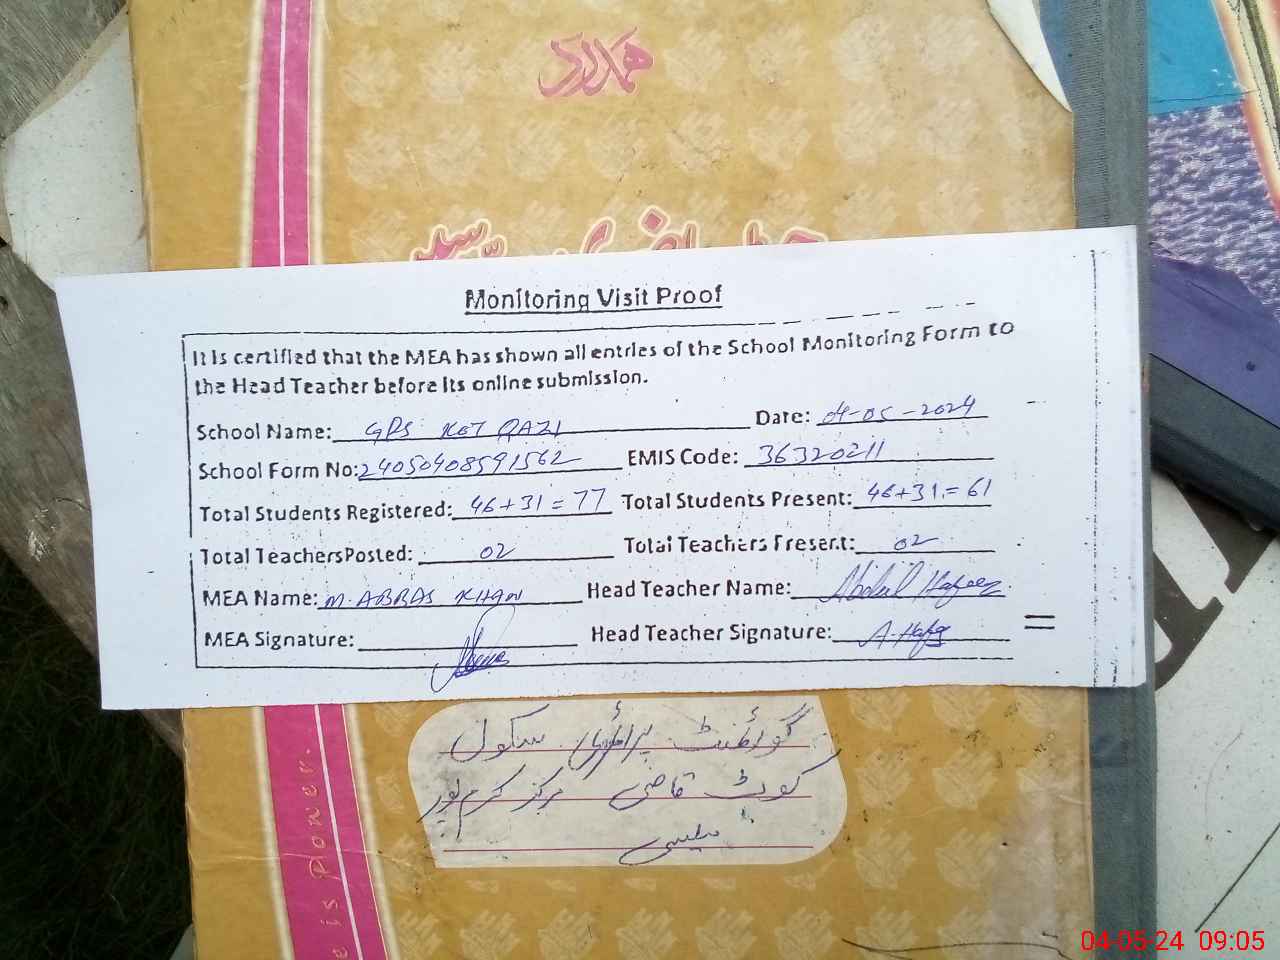 ہمدرد
Monitoring Visit Proof
It is certified that the MEA has shown all entries of the School Monitoring Form to
the Head Teacher before its online submission.
School Name: GPS KOT QAZI Date: 04-05-2024
School Form No: 24050408591562 EMIS Code: 36320211
Total Students Registered: 46+31=77 Total Students Present: 46+31=61
Total TeachersPosted: 02 Total Teachers Present: 02
MEA Name: M. ABBAS KHAN Head Teacher Name: Abdul Hafeez
MEA Signature: Head Teacher Signature: A. Hafz
گورنمنٹ پرائمری سکول
کوٹ قاضی مرکز کرم پور
میلسی
e is Power.
04-05-24 09:05